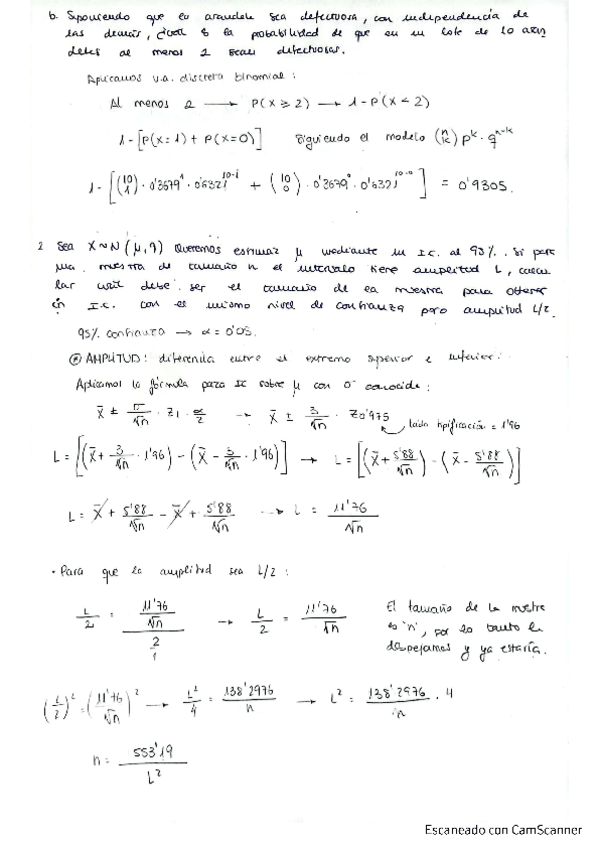 b. Suponiendo que la arandela sea defectuosa, con independencia de
las demás, ¿cuál es la probabilidad de que en un lote de 10 aran
delas al menos 2 sean defectuosas.
Aplicamos v.a. discreta binomial:
Al menos 2 → P(X ≥ 2) → 1 - P(X < 2)
1 - [P(X=1) + P(X=0)] siguiendo el modelo (n k) p^k · q^n-k
1 - [(10 1) · 0'3679^1 · 0'6321^10-1 + (10 0) · 0'3679^0 · 0'6321^10-0] = 0'9305.
2. Sea X ~ N(μ, 9) Queremos estimar μ mediante un I.C. al 95%. Si para
una muestra de tamaño n el intervalo tiene amplitud L, calcu
lar cuál debe ser el tamaño de la muestra para obtener
I.C. con el mismo nivel de confianza pero amplitud L/2.
95% confianza → α = 0'05.
AMPLITUD: diferencia entre el extremo superior e inferior.
Aplicamos la fórmula para IC sobre μ con σ conocida:
x̄ ± σ/√n · z1-α/2 → x̄ ± 3/√n · z0'975
lado tipificación = 1'96
L = [(x̄ + 3/√n · 1'96) - (x̄ - 3/√n · 1'96)] → L = [(x̄ + 5'88/√n) - (x̄ - 5'88/√n)]
L = x̄ + 5'88/√n - x̄ + 5'88/√n → L = 11'76/√n
· Para que la amplitud sea L/2:
L/2 = 11'76/√n / 2/1 → L/2 = 11'76/√n
El tamaño de la muestra
es 'n', por lo tanto la
despejamos y ya estaría.
(L/2)² = (11'76/√n)² → L²/4 = 138'2976/n → L² = 138'2976/n · 4
n = 553'19/L²
Escaneado con CamScanner